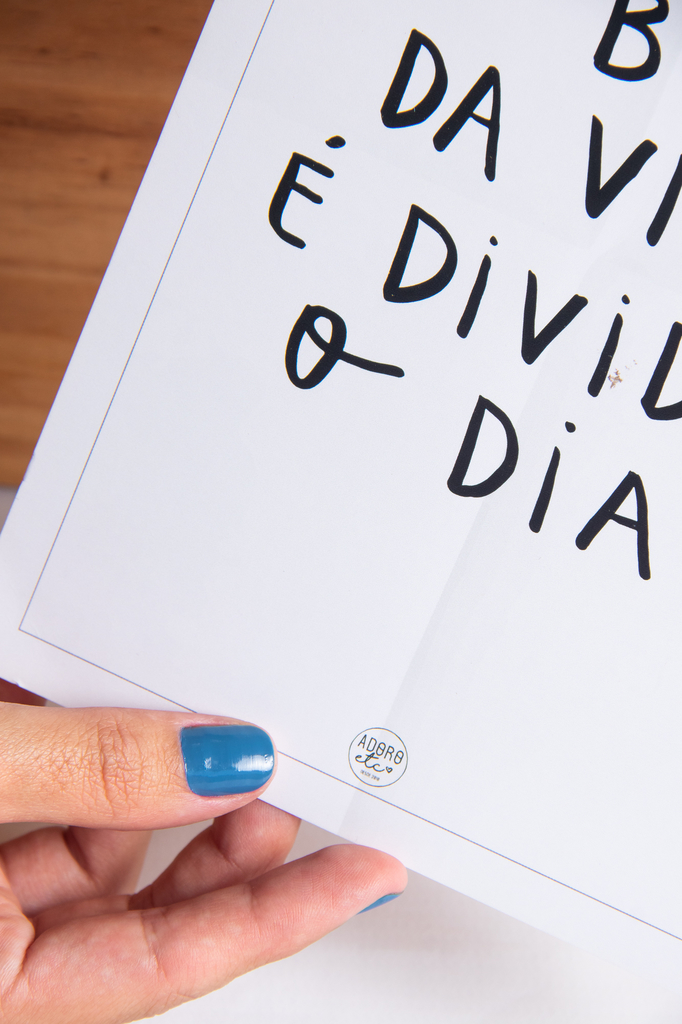 B
DA VI
É DIVID
O DIA
ADORO
etc